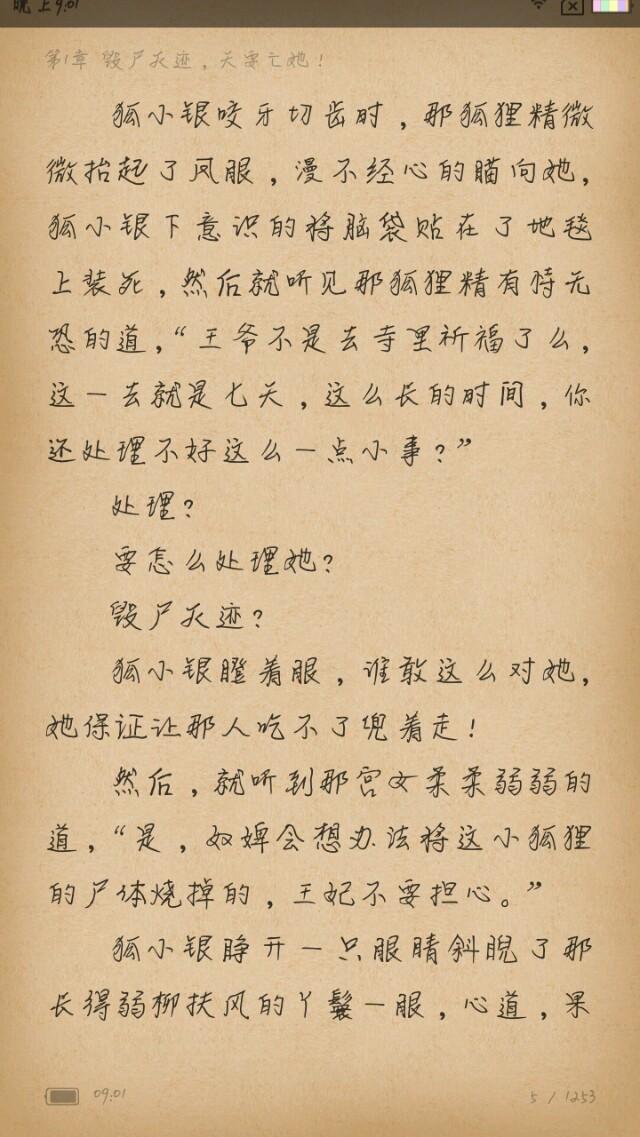 晚上9:01
第1章 毁尸灭迹，天要亡她！
狐小银咬牙切齿时，那狐狸精微
微抬起了凤眼，漫不经心的瞄向她，
狐小银下意识的将脑袋贴在了地毯
上装死，然后就听见那狐狸精有恃无
恐的道，“王爷不是去寺里祈福了么，
这一去就是七天，这么长的时间，你
还处理不好这么一点小事？”
处理？
要怎么处理她？
毁尸灭迹？
狐小银瞪着眼，谁敢这么对她，
她保证让那人吃不了兜着走！
然后，就听到那宫女柔柔弱弱的
道，“是，奴婢会想办法将这小狐狸
的尸体烧掉的，王妃不要担心。”
狐小银睁开一只眼睛斜睨了那
长得弱柳扶风的丫鬟一眼，心道，果
09:01
5 / 1253